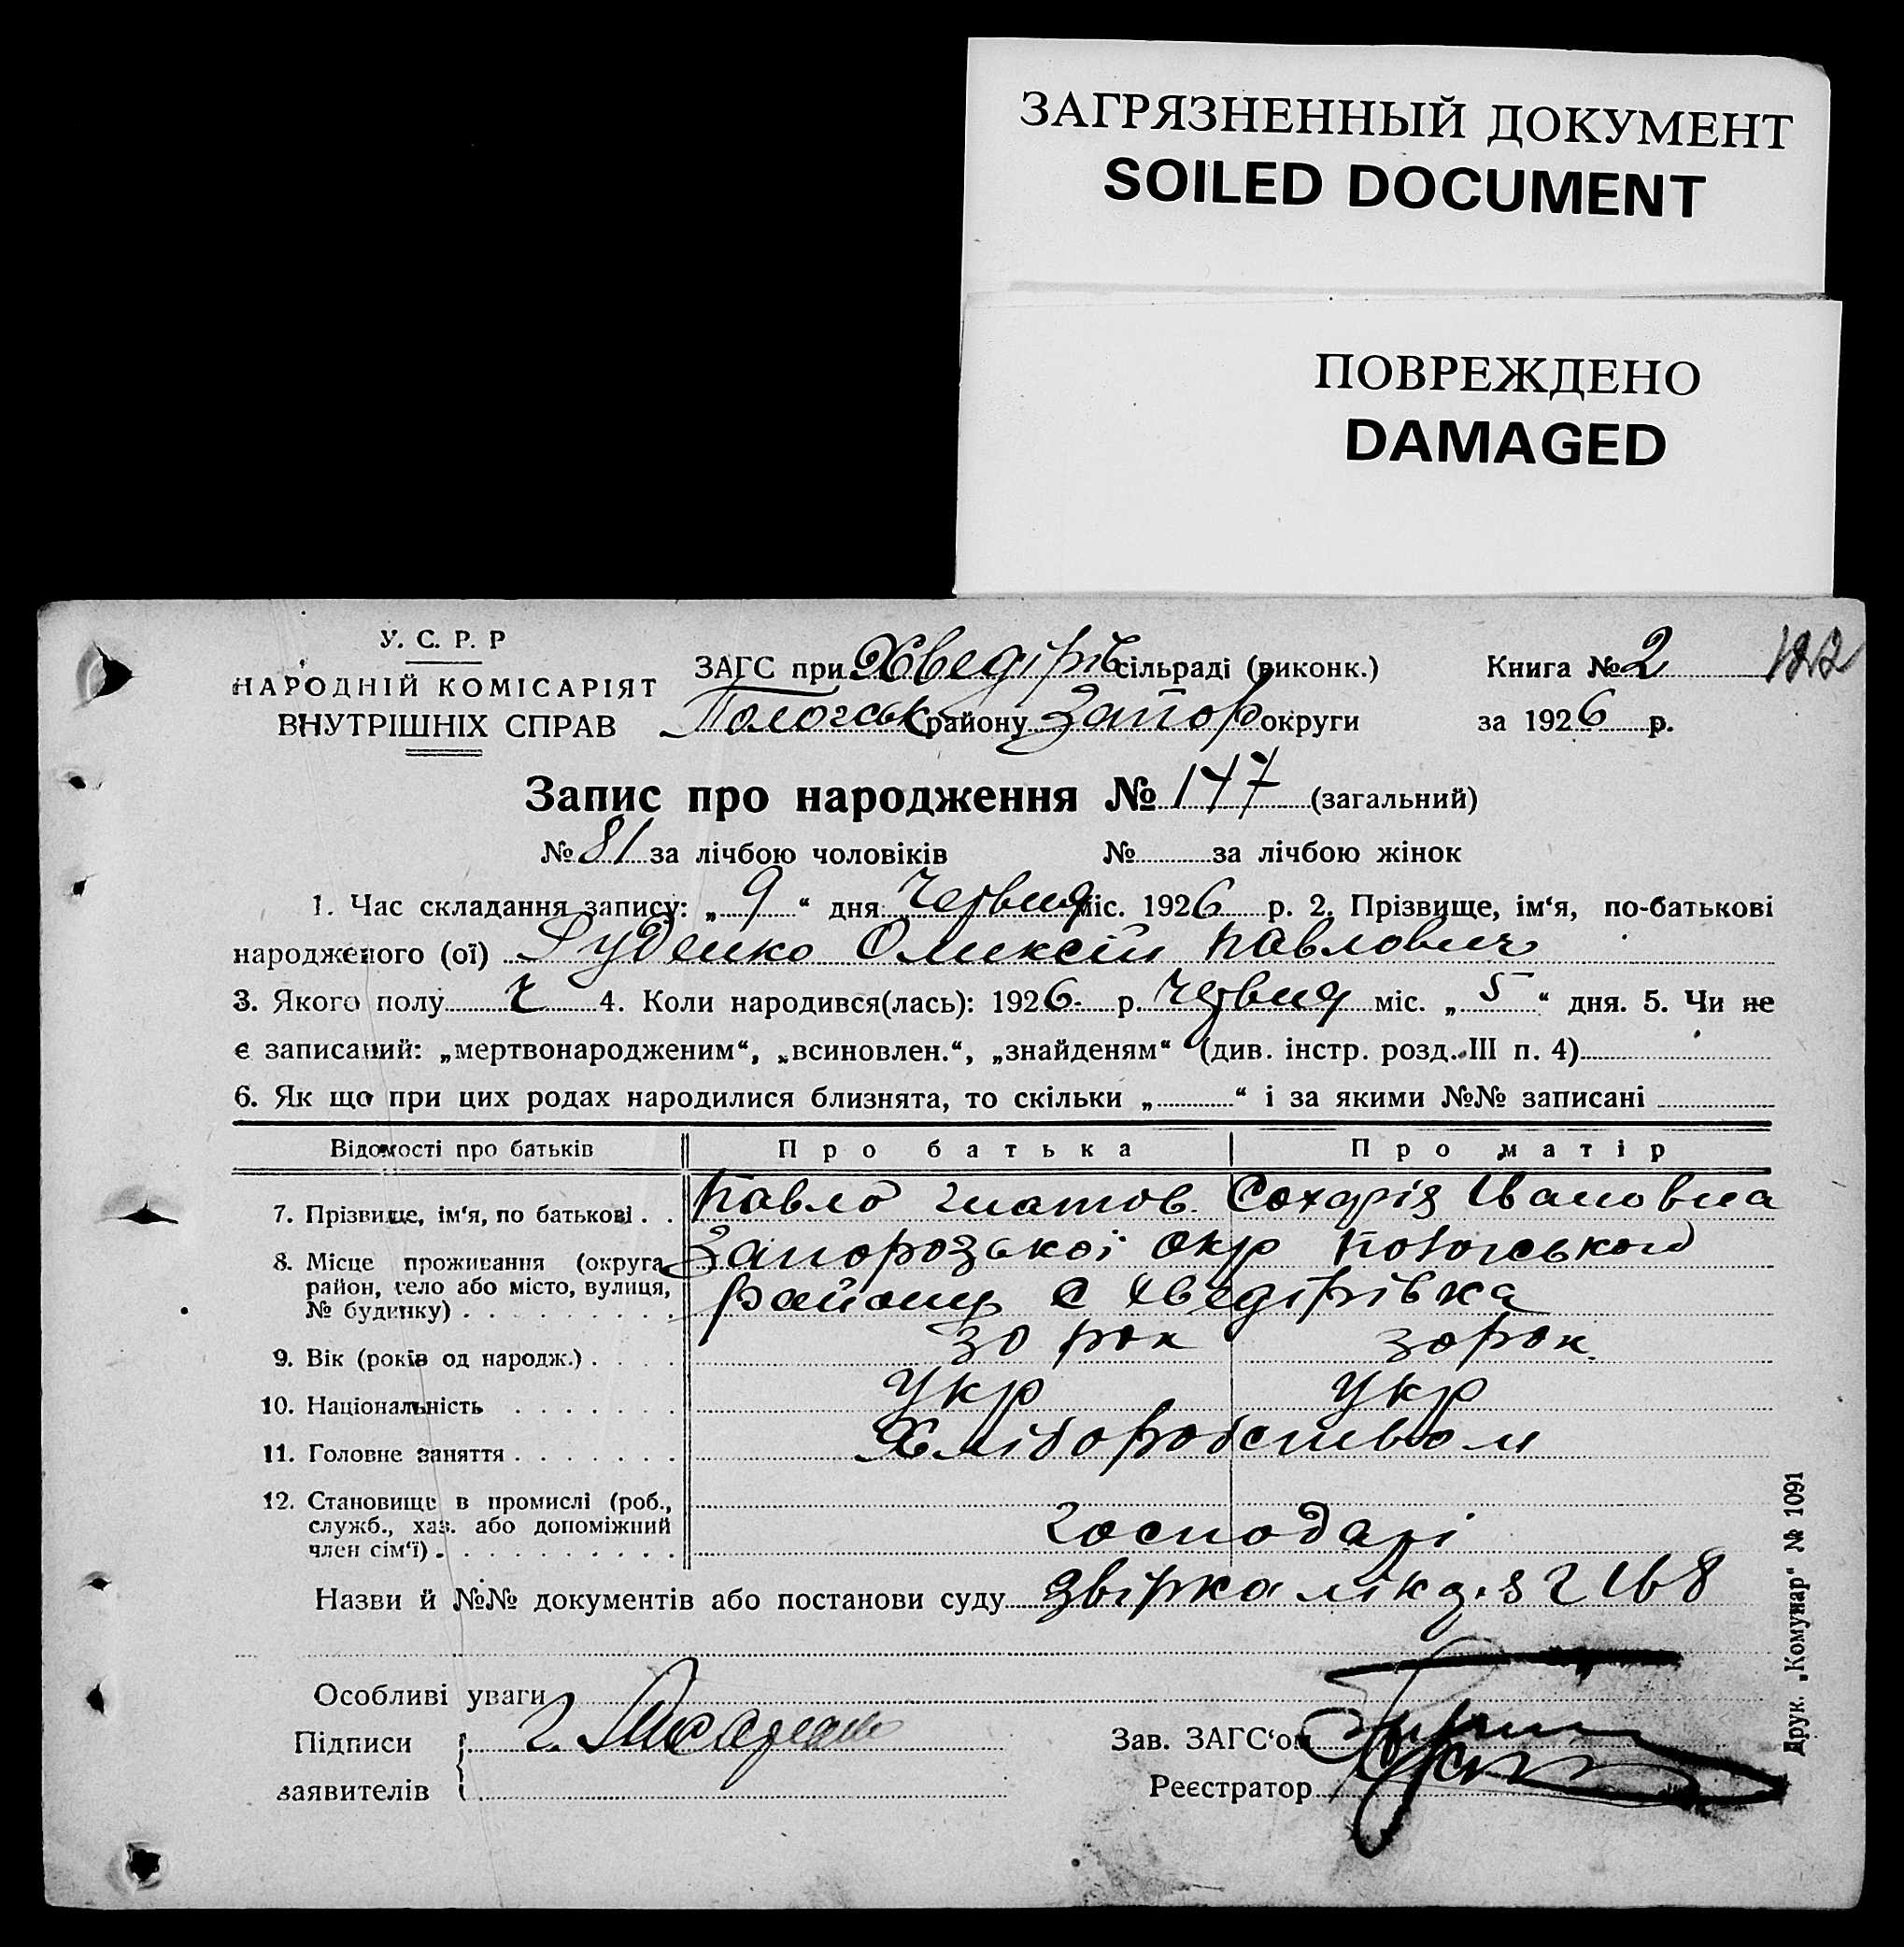 ЗАГРЯЗНЕННЫЙ ДОКУМЕНТ
SOILED DOCUMENT
ПОВРЕЖДЕНО
DAMAGED
У. С. Р. Р
НАРОДНІЙ КОМІСАРІЯТ
ВНУТРІШНІХ СПРАВ
ЗАГС при Хведірів сільраді (виконк.) Книга № 2 122
Пологськ району Запор округи за 1926 р.
Запис про народження № 147 (загальний)
№ 81 за лічбою чоловіків № за лічбою жінок
1. Час складання запису: „ 9 “ дня червня міс. 1926 р. 2. Прізвище, ім‘я, по-батькові
народженого (ої) Руденко Олексій Павлович
3. Якого полу ч 4. Коли народився(лась): 1926 р. червня міс. „ 5 “ дня. 5. Чи не
є записаний: „мертвонародженим“, „всиновлен.“, „знайденям“ (див. інстр. розд. III п. 4)
6. Як що при цих родах народилися близнята, то скільки „ “ і за якими №№ записані
Відомості про батьків Про батька Про матір
7. Прізвище, ім‘я, по батькові . . Павло Гнатов. Івановна
8. Місце проживання (округа, Запорозької окр Пологського
район, село або місто, вулиця, району с Хведірівка
№ будинку) . . . . . . . . .
9. Вік (років од народж.) . . . . 30 рок 30 рок.
10. Національність . . . . . . . укр укр
11. Головне заняття . . . . . . . Хліборобством
12. Становище в промислі (роб.,
служб., хаз. або допоміжний господарі
член сім‘ї) . . . . . . . . . .
Назви й №№ документів або постанови суду звірка
Особливі уваги
Підписи
заявителів
Зав. ЗАГС‘ом
Реєстратор
Друк. „Комунар“ № 1091